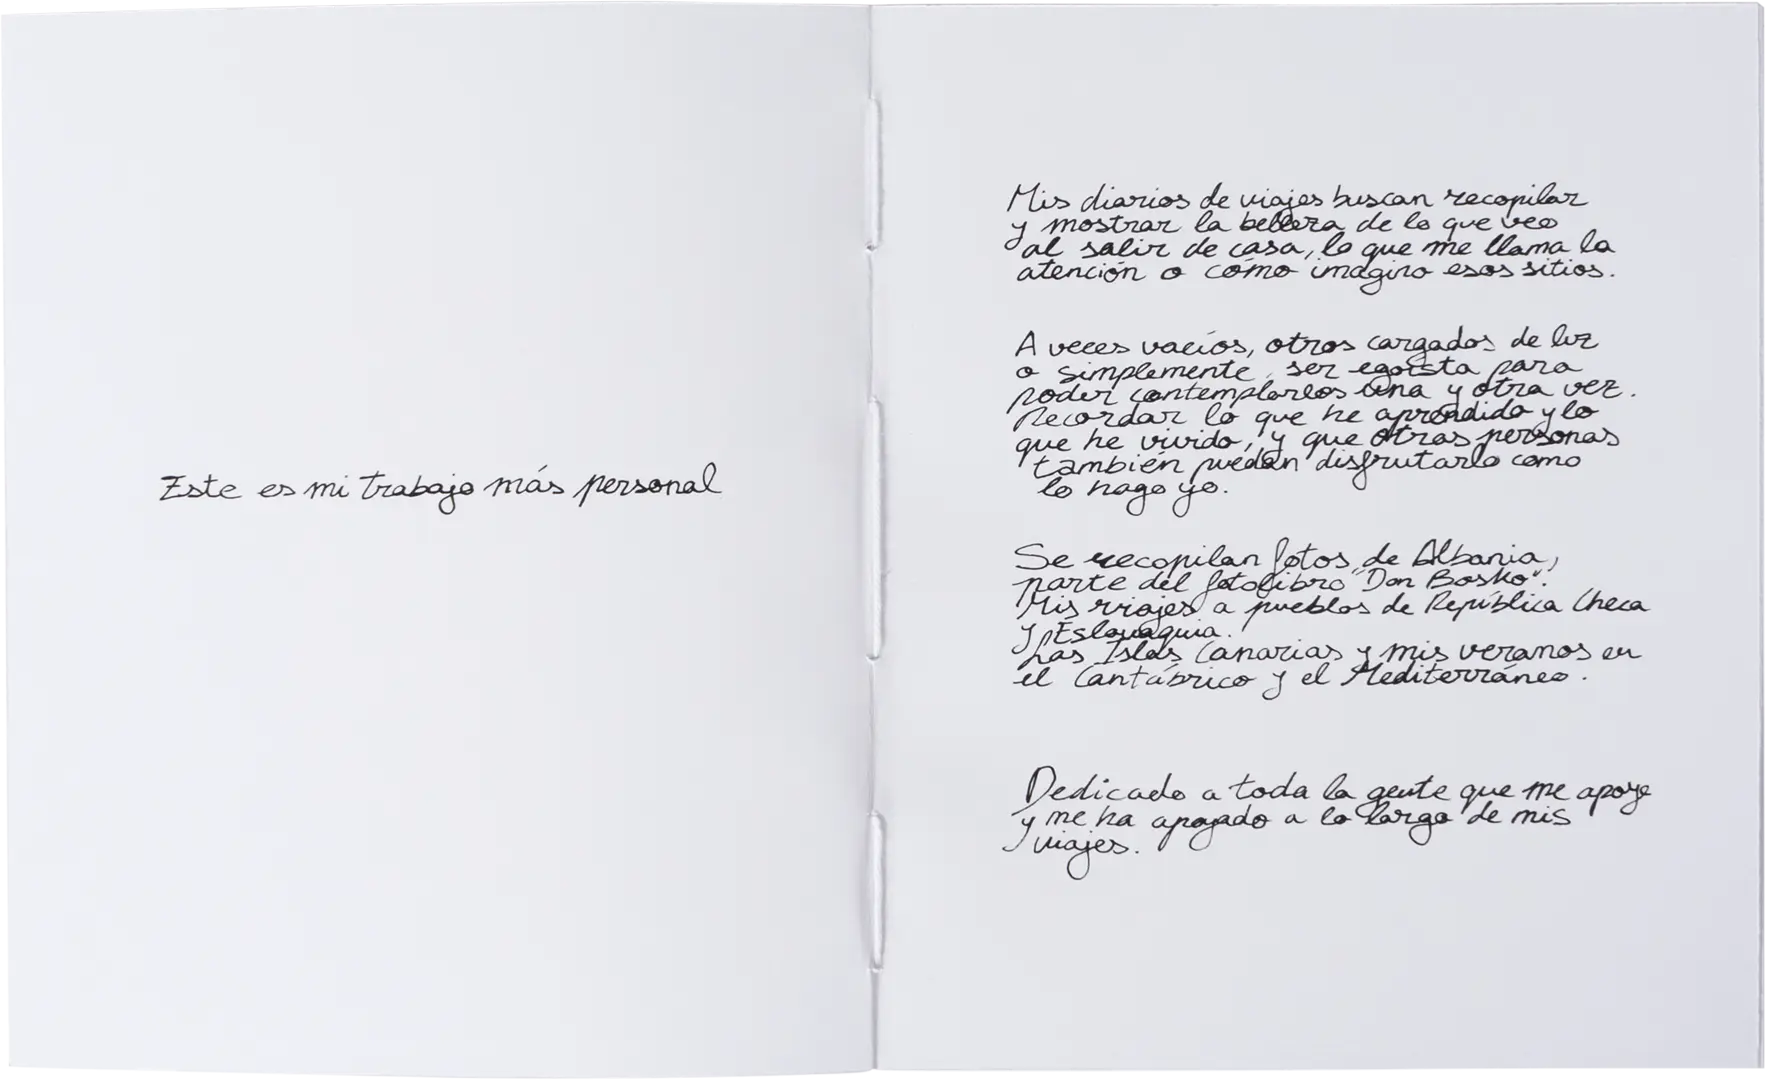 Este es mi trabajo más personal
Mis diarios de viajes buscan recopilar
y mostrar la belleza de lo que veo
al salir de casa, lo que me llama la
atención o cómo imagino esos sitios.
A veces vacíos, otros cargados de luz
o simplemente, ser egoísta para
poder contemplarlos una y otra vez.
Recordar lo que he aprendido y lo
que he vivido, y que otras personas
también puedan disfrutarlo como
lo hago yo.
Se recopilan fotos de Albania,
parte del fotolibro "Don Bosko".
Mis viajes a pueblos de República Checa
y Eslovaquia.
Las Islas Canarias y mis veranos en
el Cantábrico y el Mediterráneo.
Dedicado a toda la gente que me apoya
y me ha apoyado a lo largo de mis
viajes.